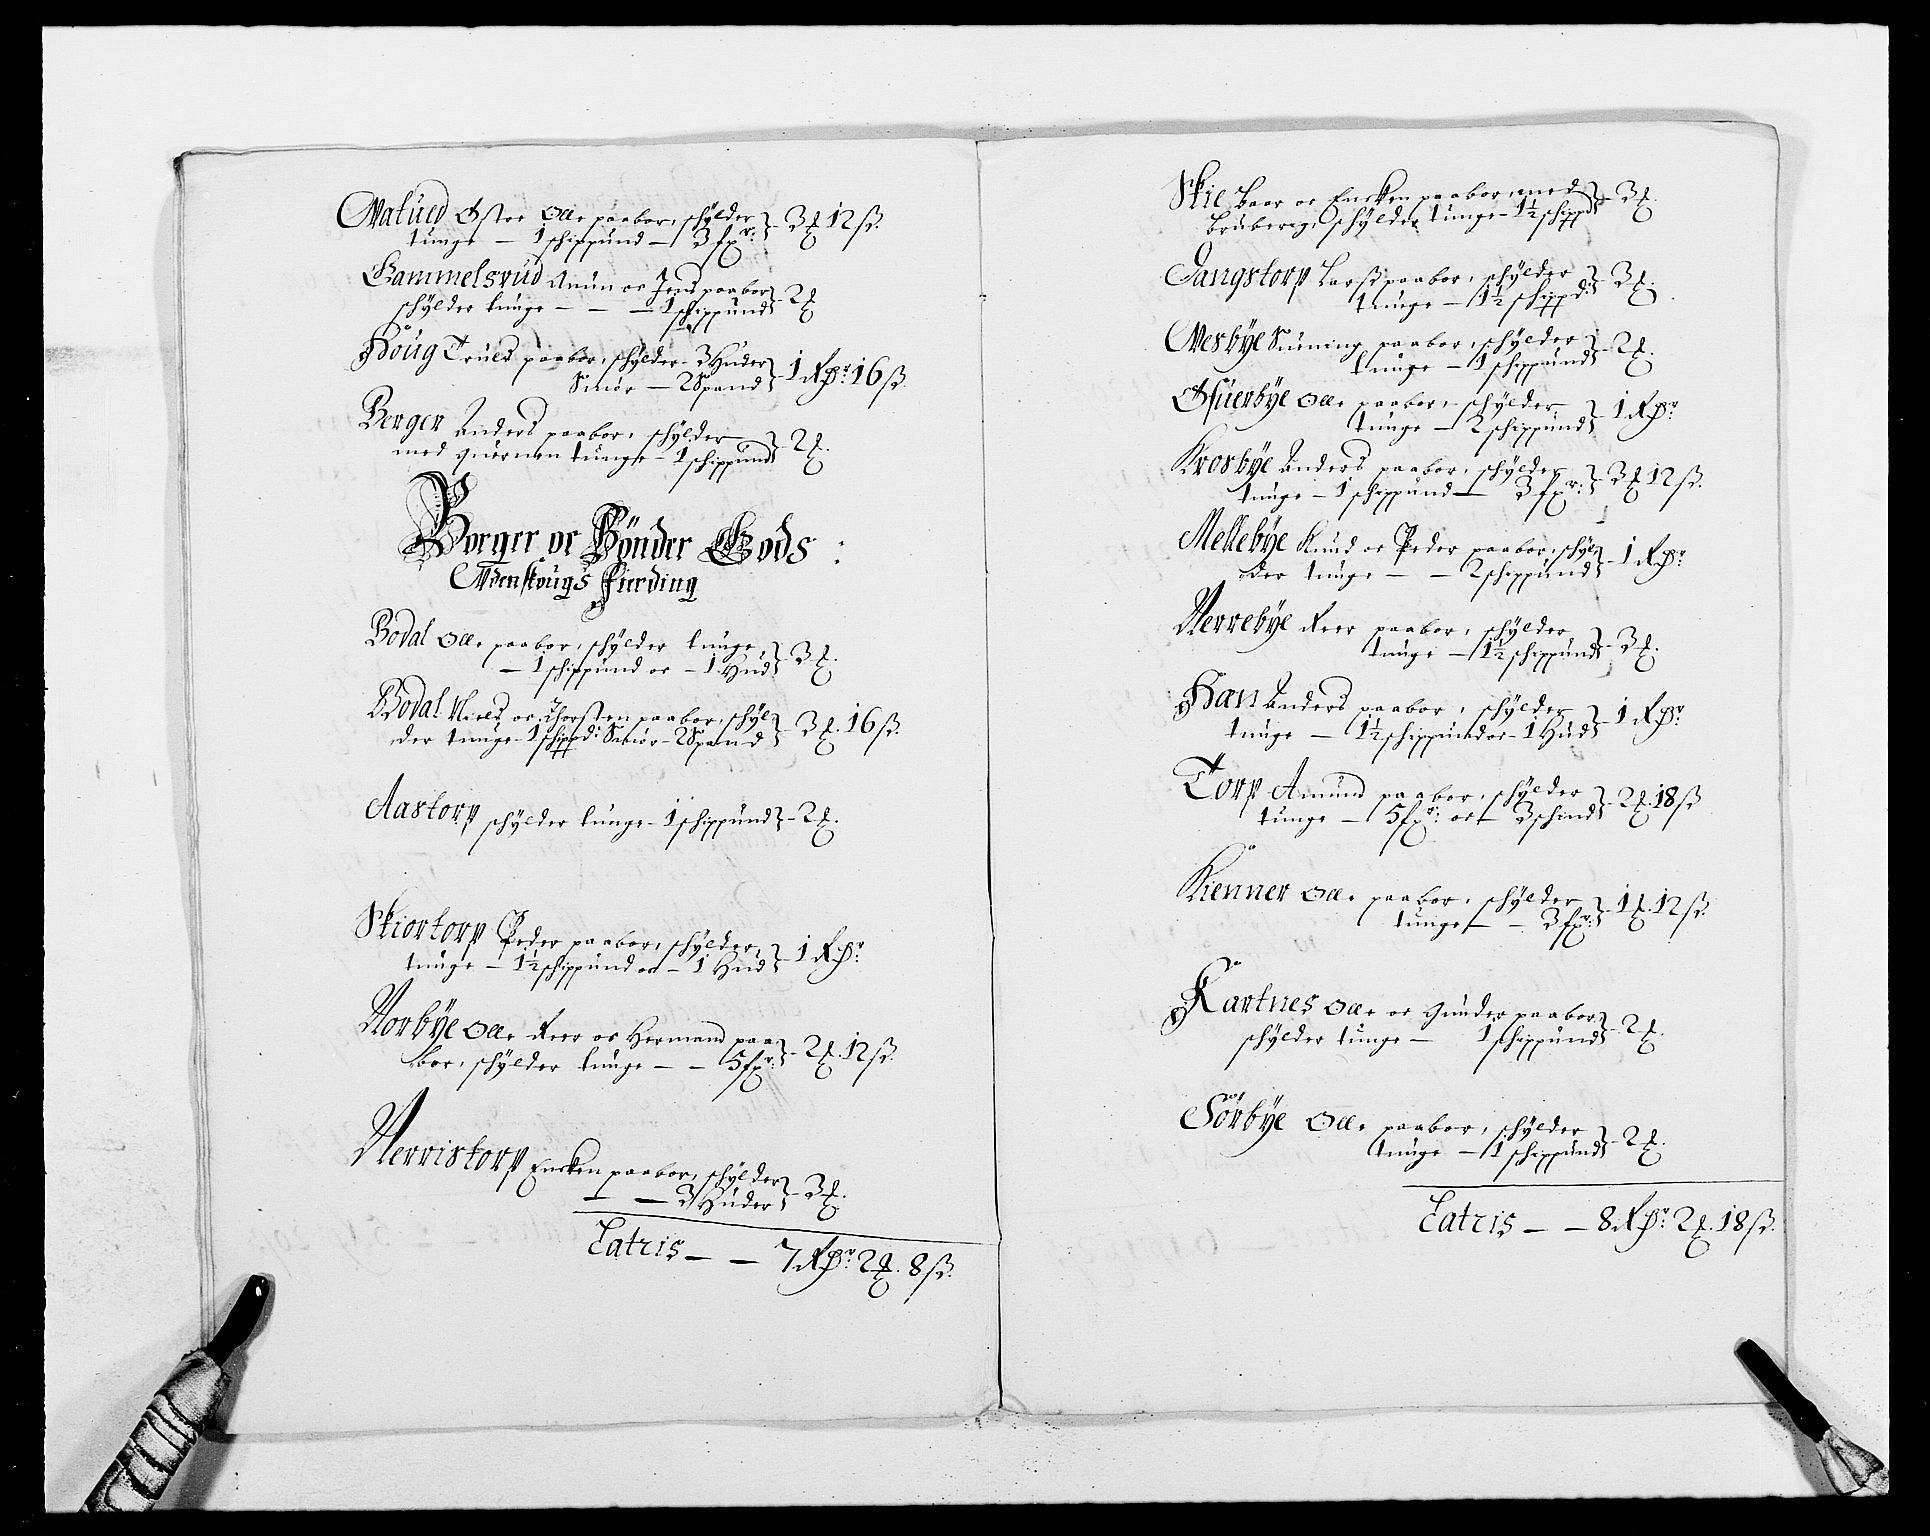 Watued Østre Ole paaboer, schylder
tunge — 1 schippund — 3 fxr: 3 ℔ 12 ß.
Gammelsrud Anun oc Jens paaboer
schylder tunge — — — 1 schippund 2 ℔
Houg Truls paaboer, schylder 3 Huder
Smør — 2 Spand 1 Rdr: 16 ß
Berger Anders paaboer, schylder
med quernen tunge — 1 schippund 2 ℔.
Borger oc Bönder Gods:
Odenskougs Fierding
Bodal Ole paaboer, schylder tunge,
— 1 schippund oc — 1 Hud 3 ℔.
Bodal Niels oc Thorsten paaboer, schyl-
der tunge — 1 schippd: Smør — 2 Spand 3 ℔. 16 ß.
Aastorp schylder tunge — 1 schippund 2 ℔.
Skiortorp Peder paaboer, schylder,
tunge — 1½ schippund oc — 1 Hud 1 Rdr
Norbÿe Ole, Reer oc Hermand paa-
boer, schylder tunge — — 5 fxr: 2 ℔. 12 ß.
Nerristorp Encken paaboer, schylder
— — 3 Huder 3 ℔.
Latris — — 7 Rdr: 2 ℔. 8 ß.
Skie Baar oc Encken paaboer, med
Bruberg, schylder tunge — 1½ schippd 3 ℔.
Gangstorp Larß paaboer, schylder
tunge — 1½ schippd: 3 ℔.
Wesbÿe Suening paaboer, schylder
tunge — 1 schippund 2 ℔.
Øfuerbÿe Ole, paaboer, schylder
tunge — 2 schippund 1 Rdr
Krosbÿe Anders paaboer, schylder
tunge — 1 schippund — 3 fxr: 3 ℔ 12 ß.
Mellebÿe Knud oc Peder paaboer, schyl-
der tunge — — 2 schippund 1 Rdr
Nerrebÿe Reer paaboer, schylder,
tunge — 1½ schippund 3 ℔.
Han Anders paaboer, schylder
tunge — 1½ schippund oc — 1 Hud 1 Rdr
Torp Amund paaboer, schylder
tunge — 5 fxr: oc — 3 schind 2 ℔. 18 ß
Kienner Ole, paaboer, schylder
tunge — — 3 fxr: 1 ℔. 12 ß.
Kartnes Ole, oc Gunder paaboer,
schylder tunge — 1 schippund 2 ℔.
Sørbÿe Ole, paaboer, schylder
tunge — 1 schippund 2 ℔.
Latris — — 8 Rdr: 2 ℔. 18 ß.